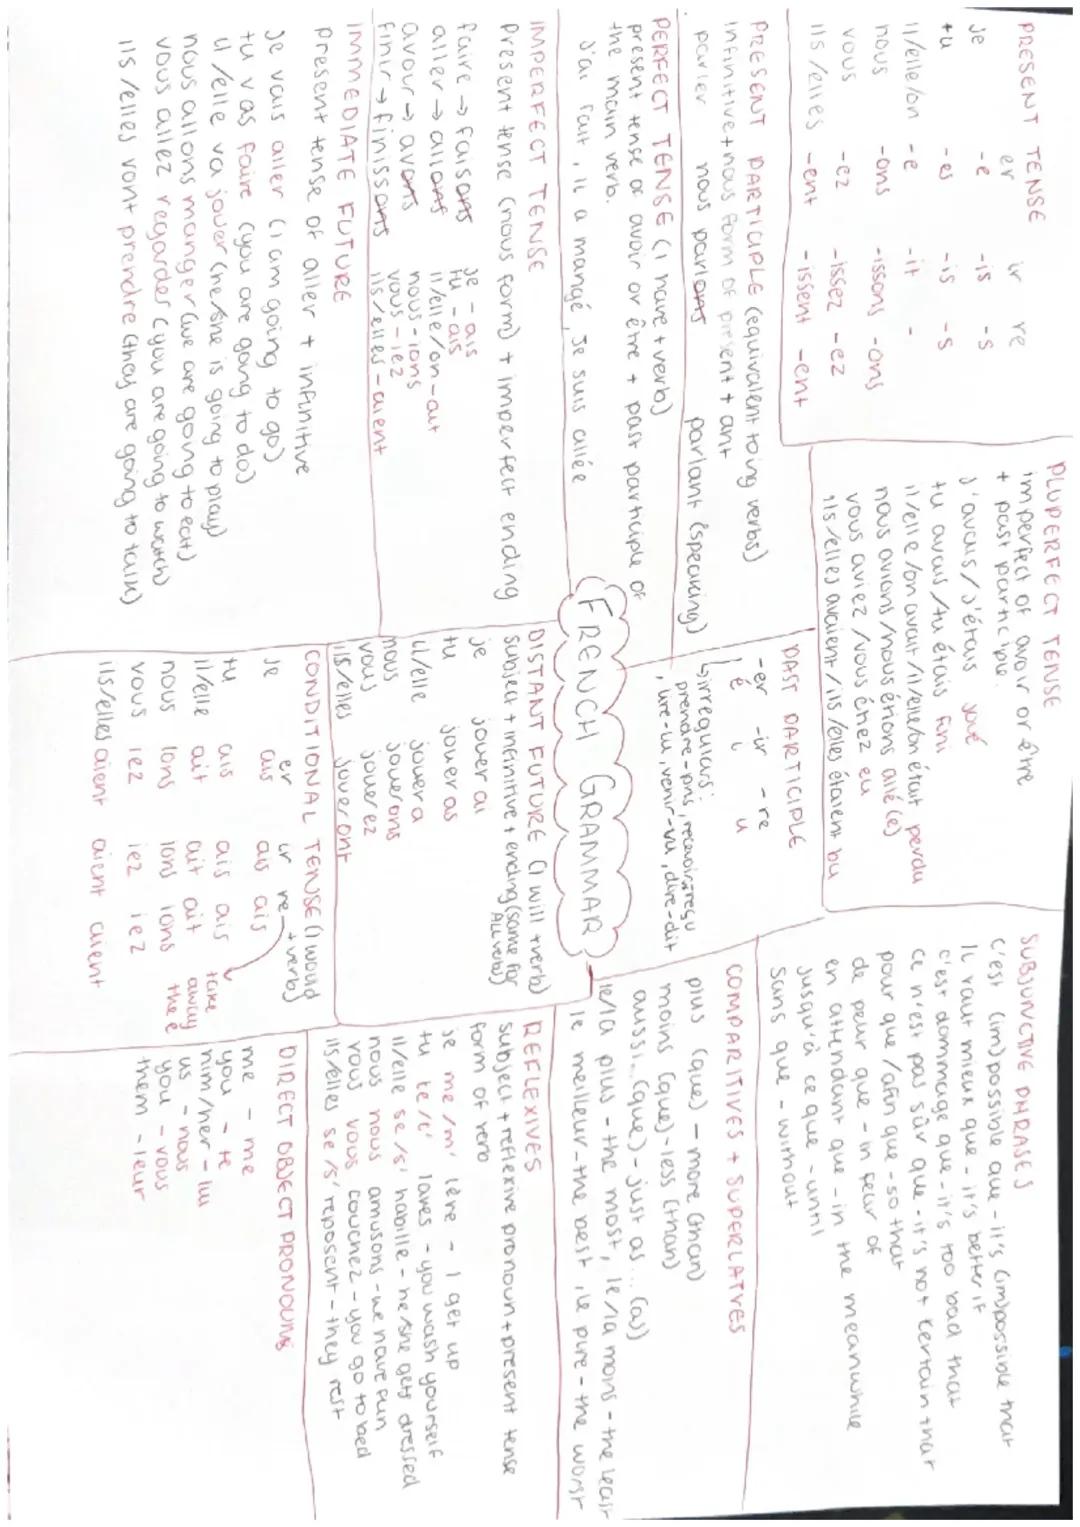 FRENCH GRAMMAR
PRESENT TENSE
er ir re
je -e -is -s
tu -es -is -s
il/elle/on -e -it -
nous -ons -issons -ons
vous -ez -issez -ez
ils/elles -ent -issent -ent
PRESENT PARTICIPLE (equivalent to ing verbs)
infinitive + nous form of present + ant
parler nous parlons parlant (speaking)
PERFECT TENSE (I have + verb)
present tense of avoir or être + past participle of
the main verb.
J'ai fait, il a mangé, Je suis allée
IMPERFECT TENSE
Present tense (nous form) + imperfect ending
faire → faisons je - ais
aller → allons tu - ais
avour → avons il/elle/on - ait
finir → finissons nous - ions
vous - iez
ils/elles - aient
IMMEDIATE FUTURE
present tense of aller + infinitive
Je vais aller (I am going to go)
tu vas faire (you are going to do)
il/elle va jouer (he/she is going to play)
nous allons manger (we are going to eat)
vous allez regarder (you are going to watch)
ils/elles vont prendre (they are going to talk)
PLUPERFECT TENSE
imperfect of avoir or être
+ past participle.
J'avais/J'étais joué
tu avais/tu étais fini
il/elle/on avait/il/elle/on était perdu
nous avions/nous étions allé(e)
vous aviez/vous étiez eu
ils/elles avaient/ils/elles étaient bu
PAST PARTICIPLE
-er -ir -re
é i u
↳ irregulars:
prendre-pris, recevoir-reçu
, lire-lu, venir-vu, dire-dit
DISTANT FUTURE (I will + verb)
subject + infinitive + ending (same for
ALL verbs)
je jouerai
tu joueras
il/elle jouera
nous jouerons
vous jouerez
ils/elles joueront
CONDITIONAL TENSE (I would
+ verb)
er ir re
je ais ais ais
tu ais ais ais
il/elle ait ait ait
nous ions ions ions
vous iez iez iez
ils/elles aient aient aient
take
away
the e
SUBJUNCTIVE PHRASES
c'est (im)possible que - it's (im)possible that
Il vaut mieux que - it's better if
c'est dommage que - it's too bad that
ce n'est pas sûr que - it's not certain that
pour que/afin que - so that
de peur que - in fear of
en attendant que - in the meanwhile
jusqu'à ce que - until
sans que - without
COMPARITIVES + SUPERLATVES
plus (que) - more (than)
moins (que) - less (than)
aussi... (que) - just as... (as)
le/la plus - the most, le/la moins - the least
le meilleur - the best, le pire - the worst
REFLEXIVES
subject + reflexive pronoun + present tense
form of verb
je me/m' lève - I get up
tu te/t' laves - you wash yourself
il/elle se/s' habille - he/she gets dressed
nous nous amusons - we have fun
vous vous couchez - you go to bed
ils/elles se/s' reposent - they rest
DIRECT OBJECT PRONOUNS
me - me
you - te
him/her - lui
us - nous
you - vous
them - leur